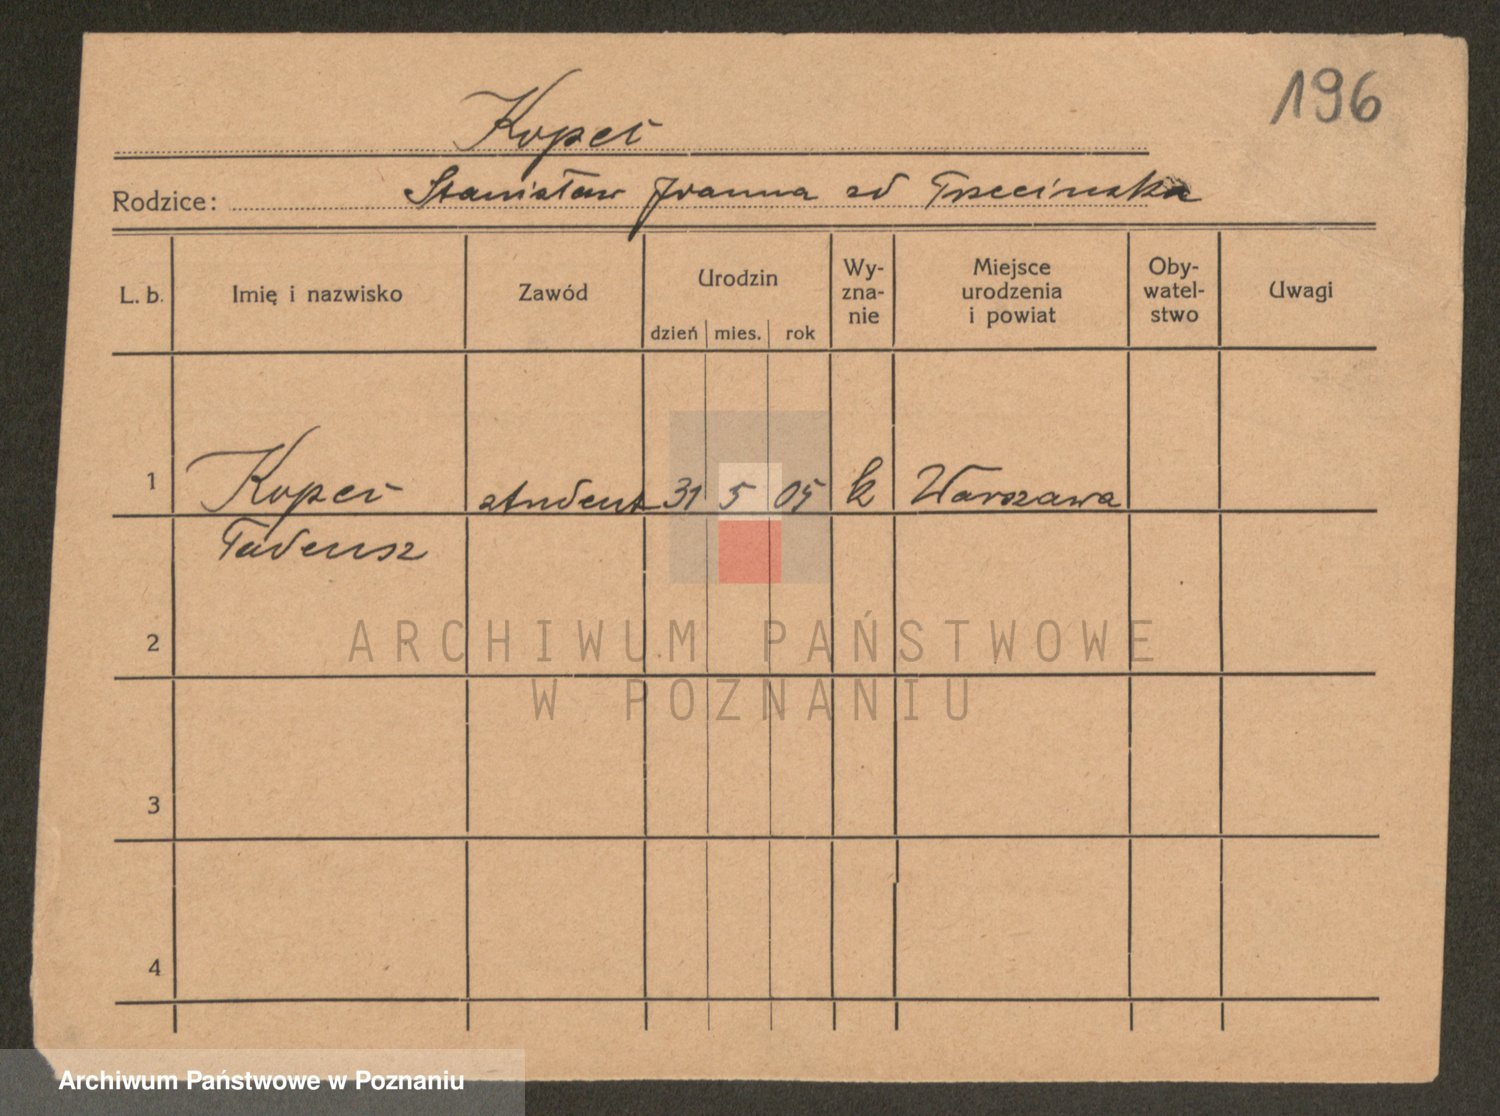 196
Kopeć
Rodzice: Stanisław Joanna zd Trzecinska
L. b.
Imię i nazwisko
Zawód
Urodzin
dzień mies. rok
Wy-
zna-
nie
Miejsce
urodzenia
i powiat
Oby-
watel-
stwo
Uwagi
1 Kopeć student 31 5 05 k Warszawa
Tadeusz
2
3
4
ARCHIWUM PAŃSTWOWE
W POZNANIU
Archiwum Państwowe w Poznaniu